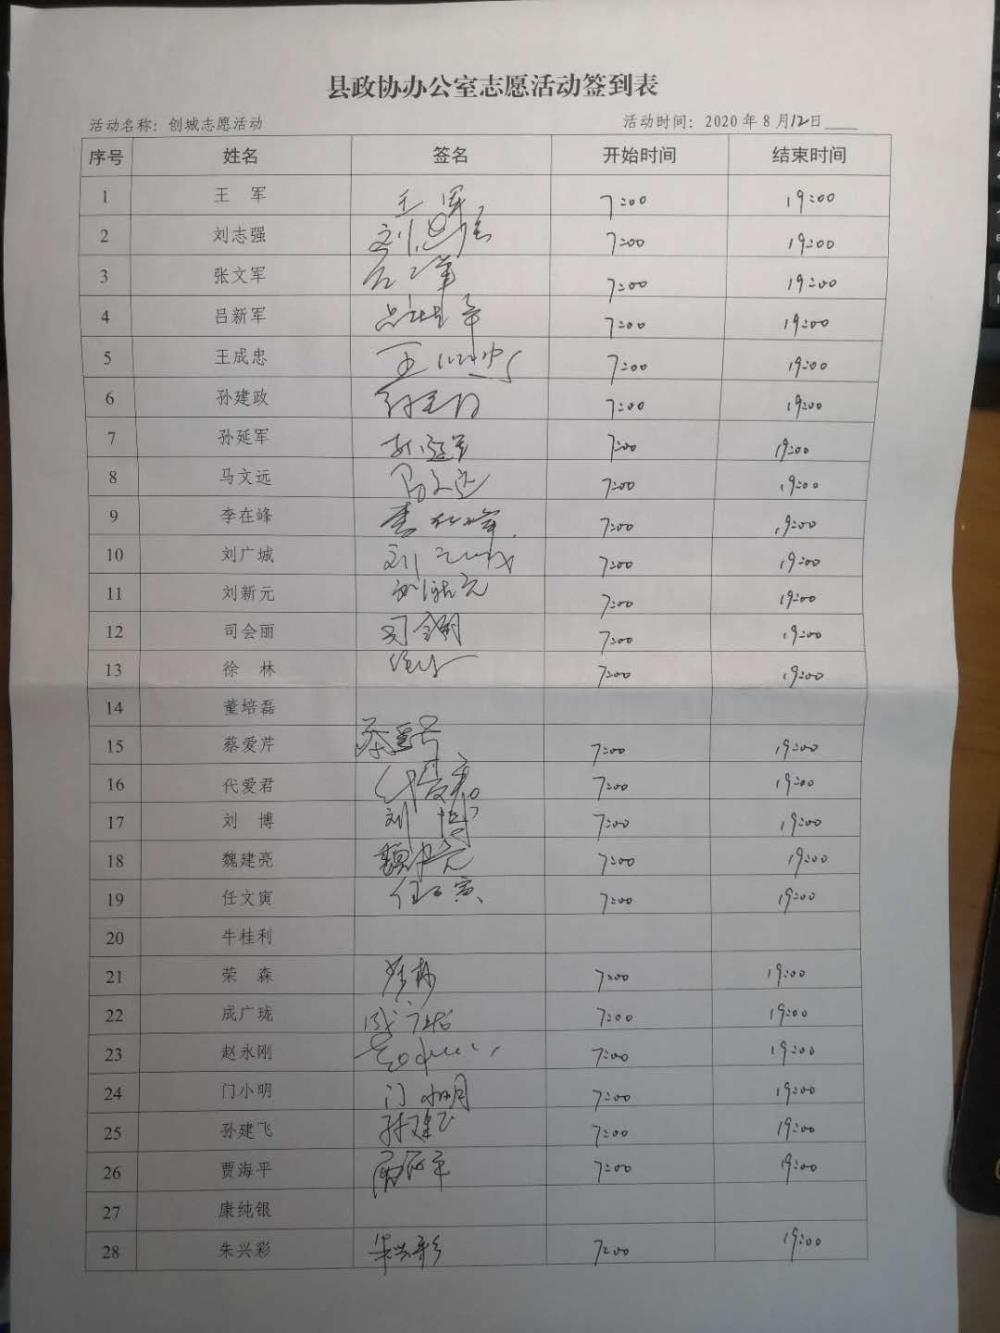 县政协办公室志愿活动签到表
活动名称：创城志愿活动 活动时间：2020年8月12日
序号 姓名 签名 开始时间 结束时间
1 王 军 王军 7:00 19:00
2 刘志强 刘志强 7:00 19:00
3 张文军 7:00 19:00
4 吕新军 吕新军 7:00 19:00
5 王成忠 王成忠 7:00 19:00
6 孙建政 孙建政 7:00 19:00
7 孙延军 孙延军 7:00 19:00
8 马文远 马文远 7:00 19:00
9 李在峰 李在峰 7:00 19:00
10 刘广城 刘广城 7:00 19:00
11 刘新元 刘新元 7:00 19:00
12 司会丽 司会丽 7:00 19:00
13 徐 林 徐林 7:00 19:00
14 董培磊
15 蔡爱芹 蔡爱芹 7:00 19:00
16 代爱君 代爱君 7:00 19:00
17 刘 博 刘博 7:00 19:00
18 魏建亮 魏建亮 7:00 19:00
19 任文寅 任文寅 7:00 19:00
20 牛桂利
21 荣 森 荣森 7:00 19:00
22 成广珑 成广珑 7:00 19:00
23 赵永刚 7:00 19:00
24 门小明 门小明 7:00 19:00
25 孙建飞 孙建飞 7:00 19:00
26 贾海平 贾海平 7:00 19:00
27 康纯银
28 朱兴彩 朱兴彩 7:00 19:00